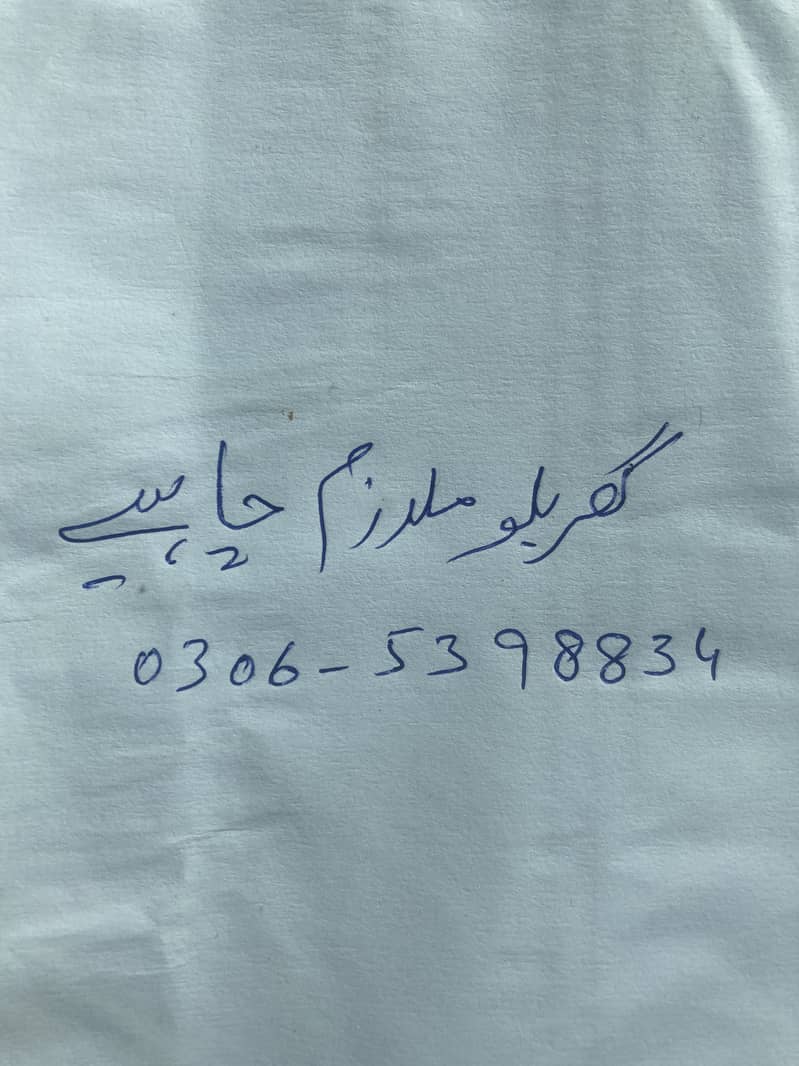 گھریلو ملازم چاہیے
0306-5398834